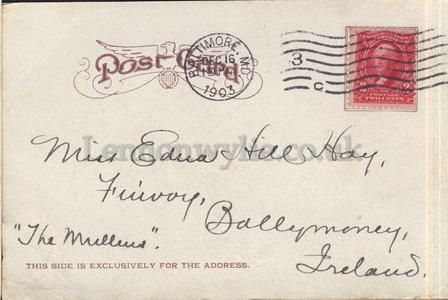 Post Card
BALTIMORE, MD.
DEC 16
1903
3
C
POSTAGE
TWO CENTS
Lennonwylie.co.uk
Miss Edna Hill Hay,
Finvoy,
Ballymoney,
"The Mullens".
Ireland.
THIS SIDE IS EXCLUSIVELY FOR THE ADDRESS.